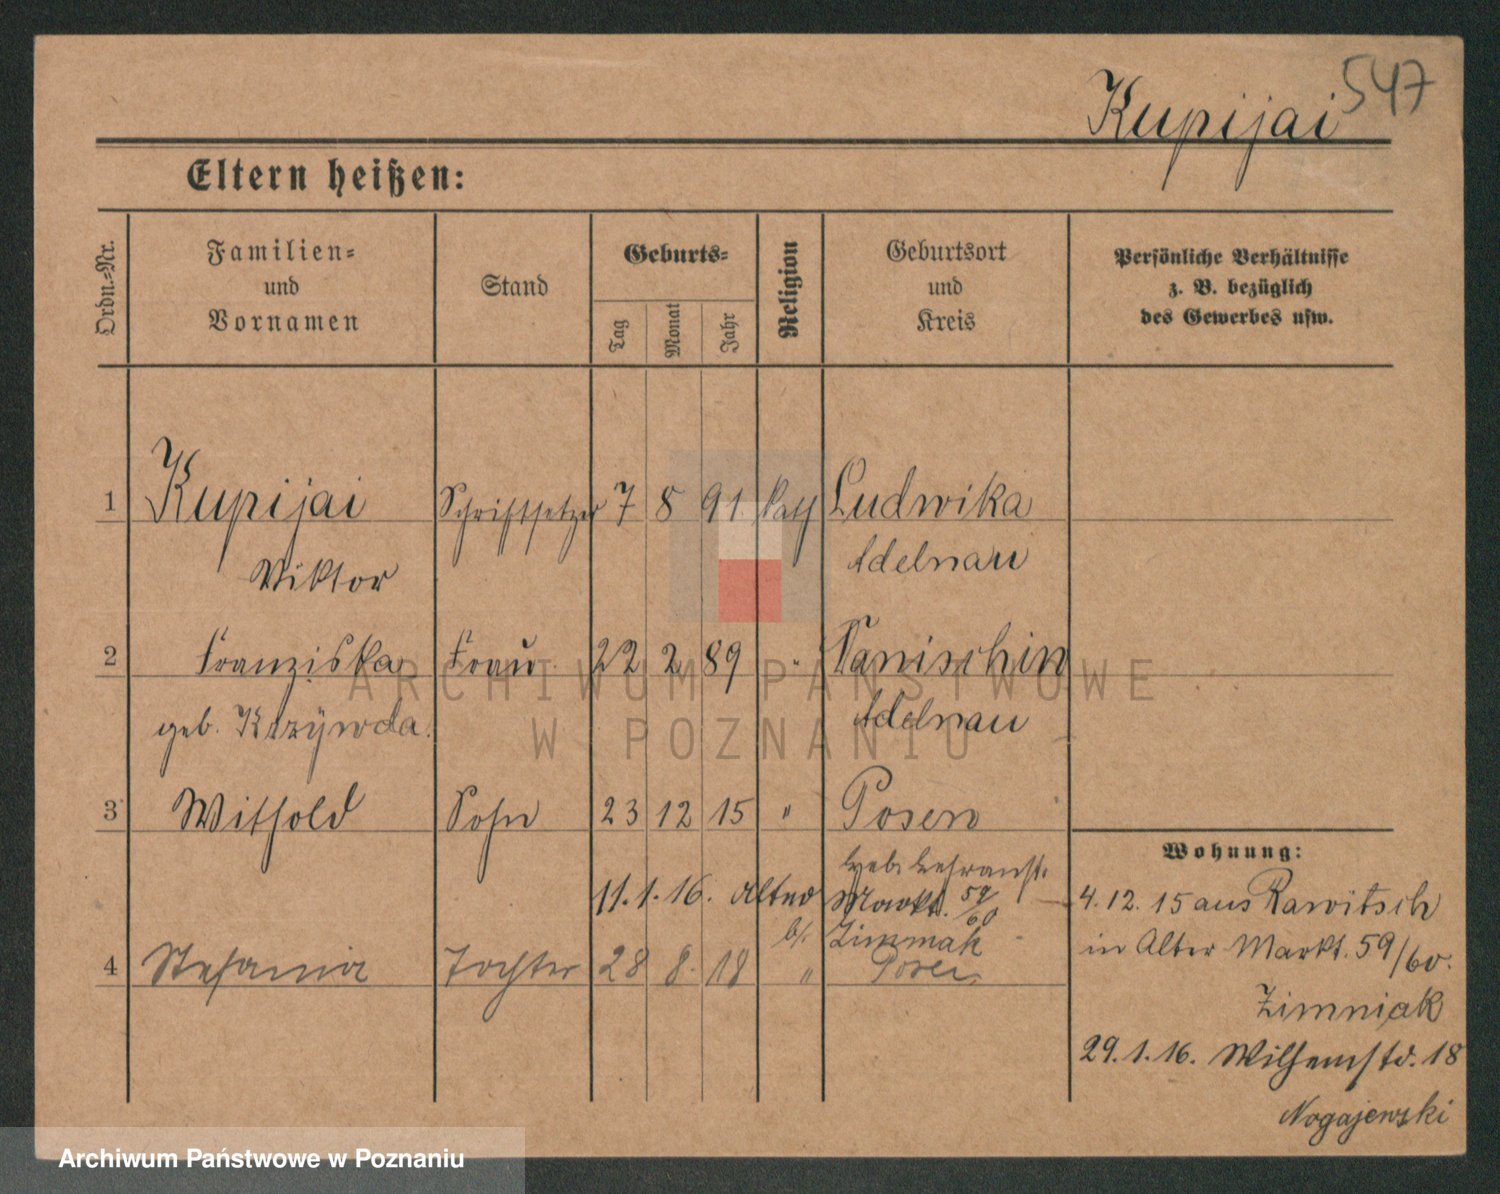 547
Kupijai
Eltern heißen:
Ordn.-Nr.
Familien- und Vornamen
Stand
Geburts-
Tag
Monat
Jahr
Religion
Geburtsort und Kreis
Persönliche Verhältnisse z. B. bezüglich des Gewerbes usw.
1 Kupijai Schriftsetzer 7 8 91 kath Ludwika
Viktor Adelnau
2 Franziska Frau 22 2 89 " Tanischin
geb. Krzÿwda. Adelnau
3 Withold Sohn 23 12 15 " Posen
Wohnung:
11.1.16. Alter Markt. 59/60
b/. Zimniak
4 Stefania Tochter 28 8. 18 " Posen
4. 12. 15 aus Rawitsch
in Alter Markt. 59/60.
Zimniak
29. 1. 16. Wilhemstr. 18
Nogajewski
ARCHIWUM PAŃSTWOWE
W POZNANIU
Archiwum Państwowe w Poznaniu